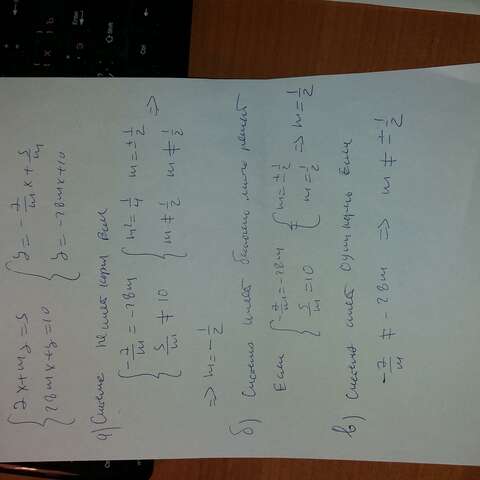 { 7x + my = 5 { y = -7/m x + 5/m
{ 28mx + y = 10 { y = -28mx + 10
а) Система не имеет корни если
{ -7/m = -28m { m² = 1/4 m = ± 1/2
{ 5/m ≠ 10 { m ≠ 1/2 m ≠ 1/2 =>
=> m = -1/2
б) Система имеет бесконечно много решений
Если { -7/m = -28m { m = ± 1/2
{ 5/m = 10 { m = 1/2 => m = 1/2
в) Система имеет один корень если
-7/m ≠ -28m => m ≠ ± 1/2